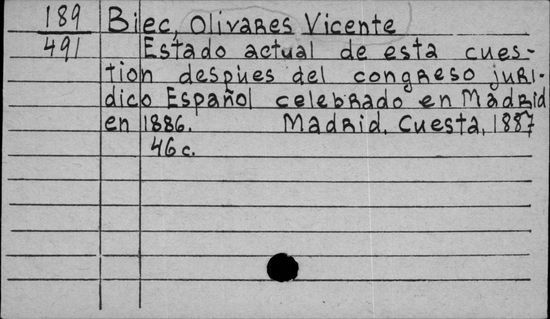 189 Biec, Olivares Vicente
491 Estado actual de esta cues-
tion despues del congreso juri-
dico Español celebrado en Madrid
en 1886. Madrid, Cuesta, 1887
46 c.